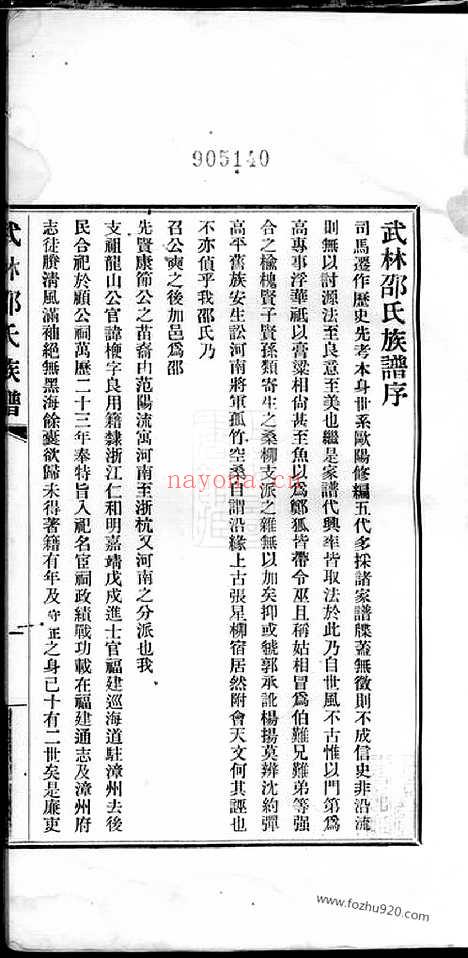 905140
武林邵氏族譜序
司馬遷作歷史先考本身世系歐陽修編五代多採諸家譜牒蓋無徵則不成信史非沿流
則無以討源法至良意至美也繼是家譜代興率皆取法於此乃自世風不古惟以門第爲
高專事浮華祗以膏粱相尙甚至魚以爲鄭狐皆帶令巫且稱姑相冒爲伯難兄難弟等强
合之楡槐賢子賢孫類寄生之桑柳支派之雜無以加矣抑或虢郭承訛楊揚莫辨沈約彈
高平舊族安生訟河南將軍孤竹空桑自謂沿緣上古張星柳宿居然附會天文何其誣也
不亦偵乎我邵氏乃
召公奭之後加邑爲邵
先賢康節公之苗裔由范陽流寓河南至浙杭又河南之分派也我
支祖龍山公官諱楩字良用籍隸浙江仁和明嘉靖戊戌進士官福建巡海道駐漳州去後
民合祀於顧公祠萬歷二十三年奉特旨入祀名宦祠政績戰功載在福建通志及漳州府
志徒賸清風滿袖絕無黑海餘囊欲歸未得著籍有年及守正之身已十有二世矣是廉吏
武林邵氏族譜
nayona.cn
www.fozhu920.com